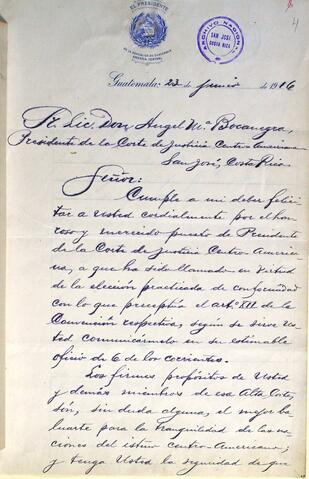 4
EL PRESIDENTE
DE LA REPUBLICA DE GUATEMALA
AMERICA CENTRAL
ARCHIVO NACIONAL
SAN JOSE
COSTA RICA
Guatemala: 22 de junio de 1916
Sr. Lic. Don Angel Mª Bocanegra,
Presidente de la Corte de Justicia Centro Americana
San José, Costa Rica
Señor:
Cumple a mi deber felici
tar a Usted cordialmente por el hon
roso y merecido puesto de Presidente
de la Corte de Justicia Centro-America
na, a que ha sido llamado en virtud
de la elección practicada de conformidad
con lo que preceptúa el artº XII de la
Convención respectiva, según se sirve Us
ted comunicármelo en su estimable
oficio de 6 de los corrientes.
Los firmes propósitos de Usted
y demás miembros de esa Alta Corte,
son, sin duda alguna, el mejor ba
luarte para la tranquilidad de las na
ciones del istmo centro-Americano;
y tenga Usted la seguridad de que